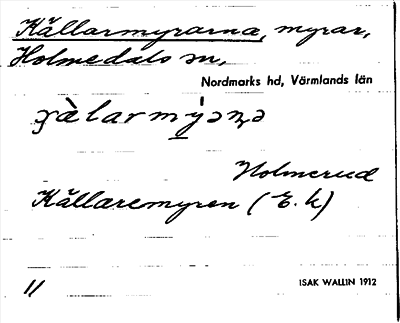 Källarmyrarna, myrar,
Holmedals sn,
Nordmarks hd, Värmlands län
Holmerud
Källaremyren (E. k)
11
ISAK WALLIN 1912